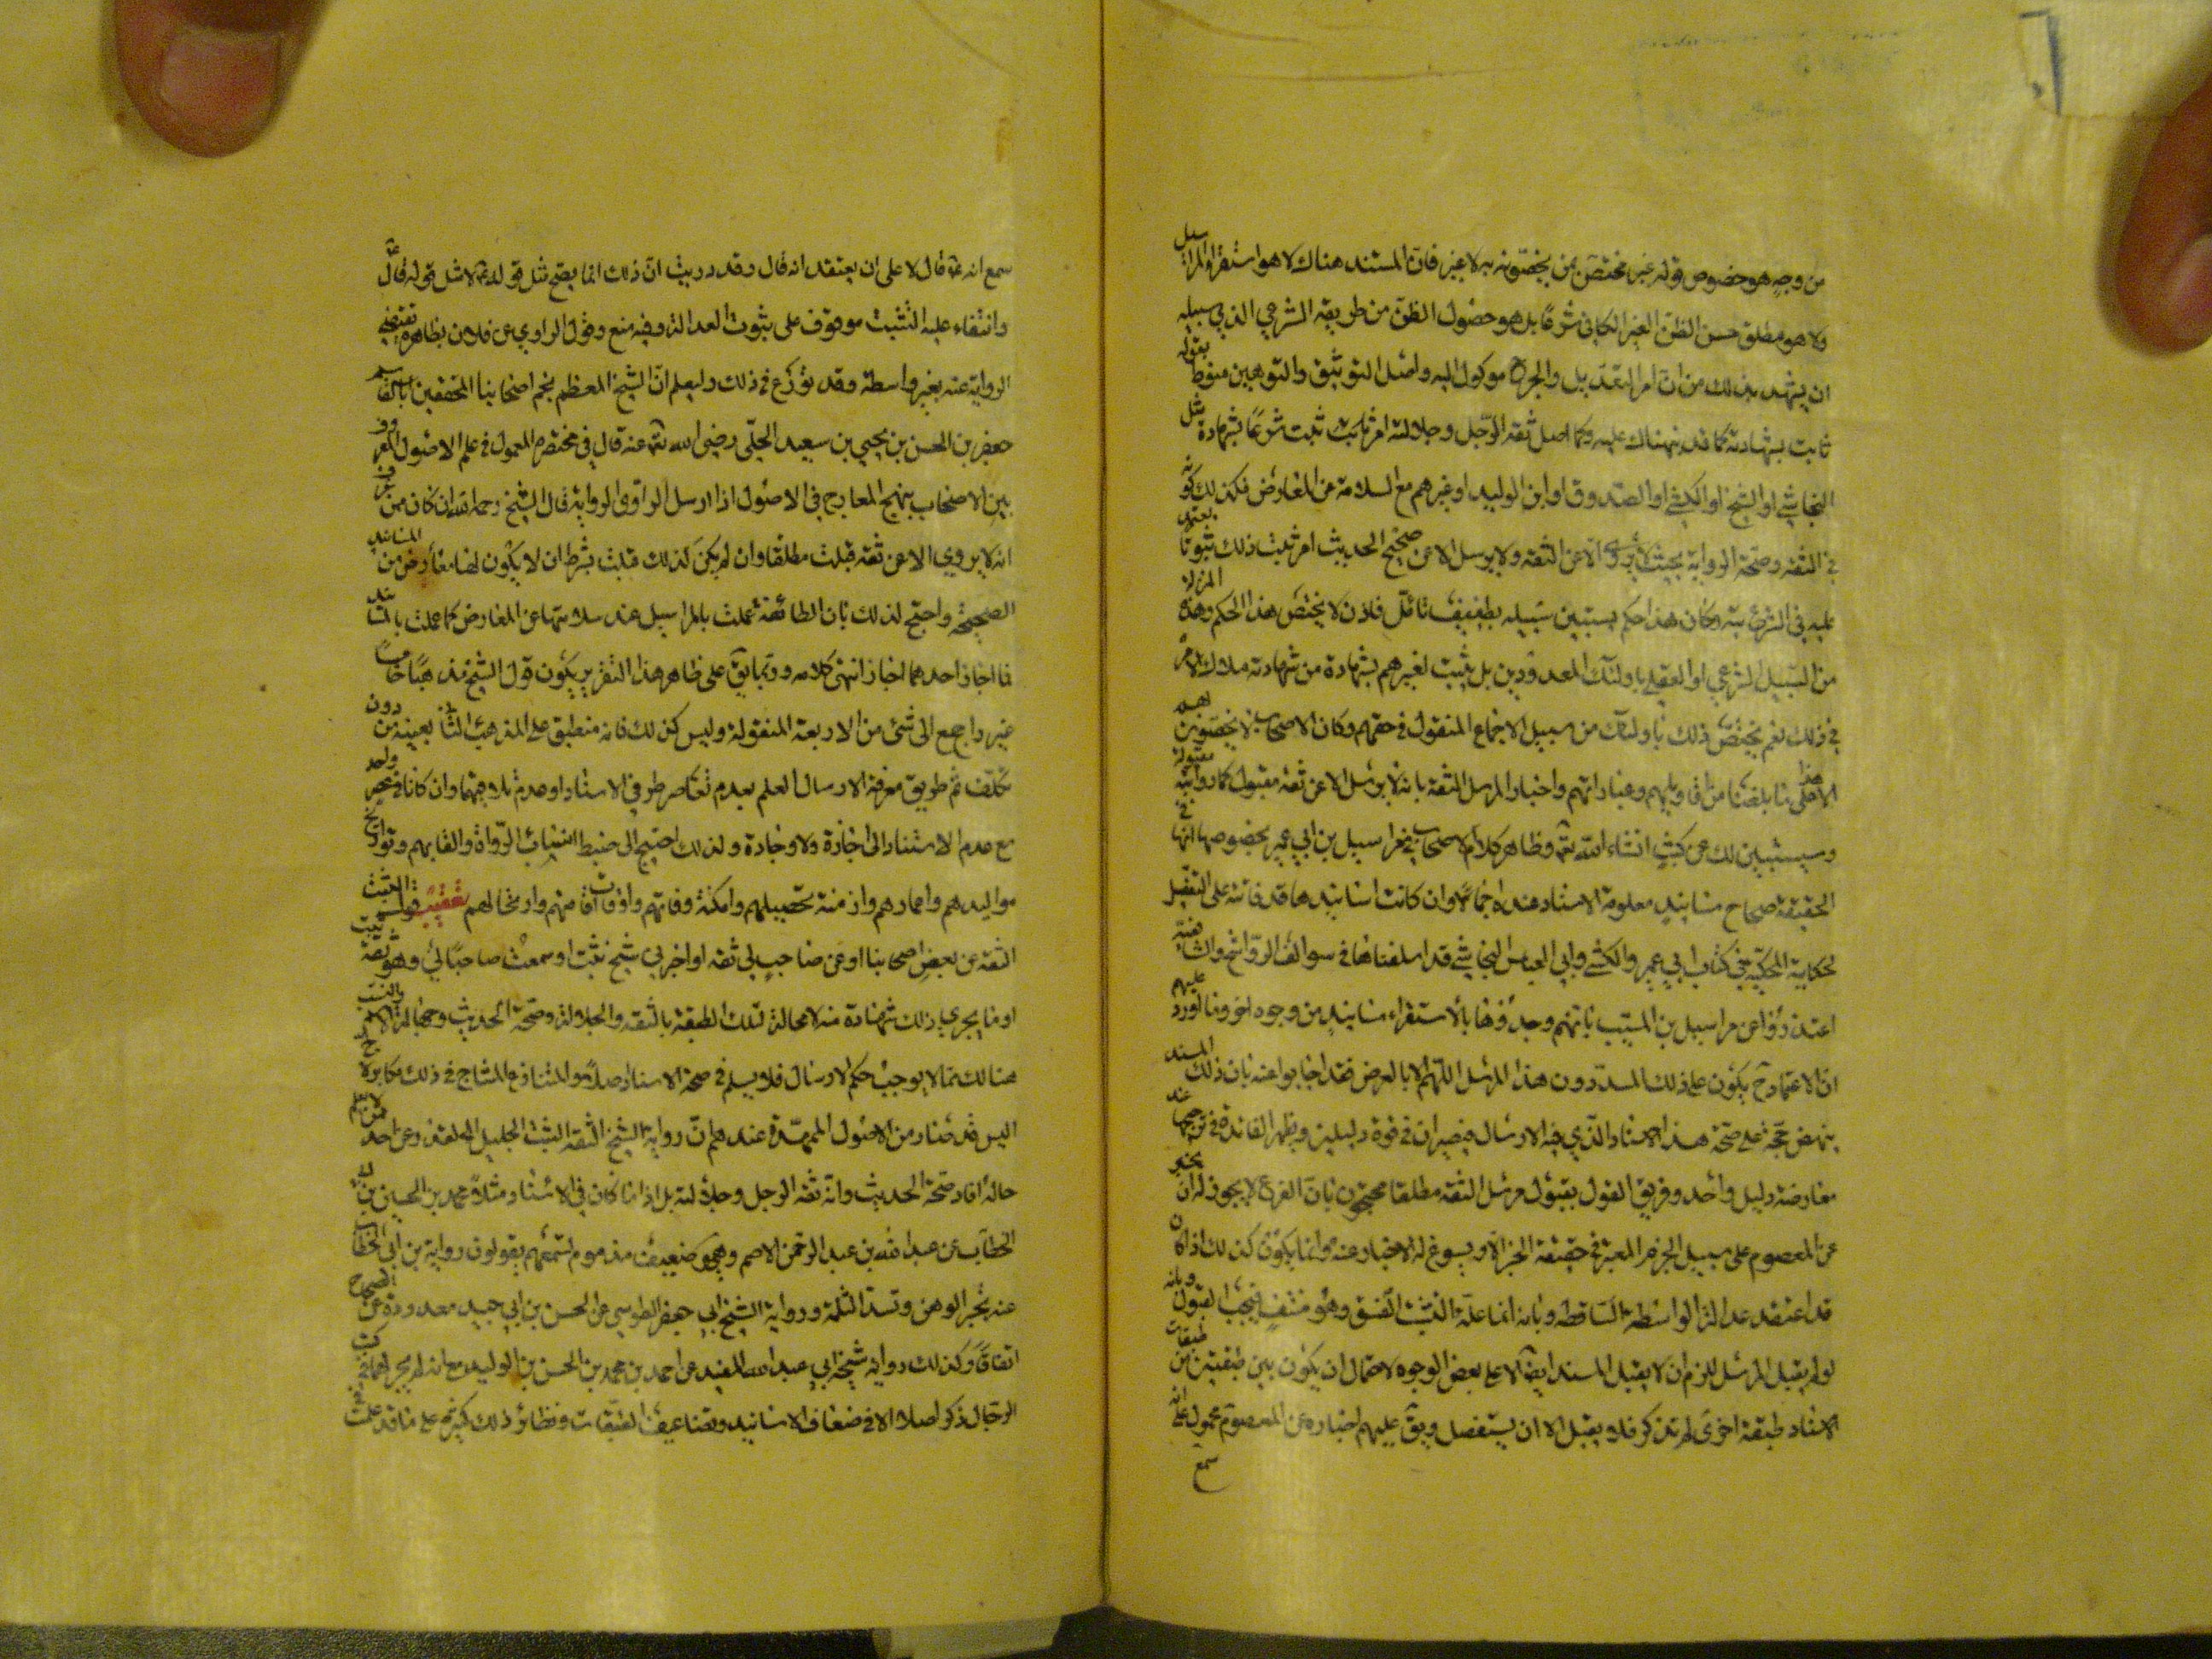 من وجه هو خصوص قوله غير مختص بمن يخصونه به لا غير فان المستند هناك لا هو استقراء المراسيل
ولا هو مطلق حسن الظن الغير الكافي شرعا بل هو حصول الظن من طريقه الشرعي الذي سبيله
ان يشهد بذلك من ان امر التعديل والجرح موكول اليه واصل التوثيق والتوهين منوط بقوله
ثابت بشهادته كما قد نبهناك عليه وكما اصل ثقة الرجل وجلالته امر ثابت شرعا بشهادة مثل
النجاشي او الشيخ او الكشي او الصدوق او ابن الوليد او غيرهم مع السلامة عن المعارض فكذلك كونه
في الثقة وصحة الرواية بحيث لا يروى الا عن الثقة ولا يرسل الا عن صحيح الحديث امر يثبت ذلك ثبوتا يعتمد
عليه في الشرع بتة وكان هذا حكم يستبين سبيله بطفيف تأمل فاذن لا يختص هذا الحكم وهذه المنزلة
من السبيل الشرعي او العقلي باولئك المعدودين بل يثبت لغيرهم بشهادة من شهادته ملاك الامر
في ذلك نعم يختص ذلك باولئك من سبيل الاجماع المنقول في حقهم وكان الاصحاب لا يخصونهم
الا على ما بلغنا من اقاويلهم وعباراتهم واخبار المرسل الثقة بانه لا يرسل الا عن ثقة مقبول كما روايته مقبولة هذا
وسيستبين لك عن كثب انشاء الله تعالى وظاهر كلام الاصحاب في مراسيل بن ابي عمير بخصوصها انها في
الحقيقة صحاح مسانيد معلومة الاسناد عنده اجمالا وان كانت اسانيدها قد فاتته على التفصيل
لحكاية المحكية في كتاب ابي عمير والكشي وابي العباس النجاشي قد اسلفناها في سوالف الرواشح والشافعية
اعتذروا عن مراسيل بن المسيب بانهم وجدوها بالاستقراء مسانيد من وجوه اخر ومما اورد عليهم
ان الاعتماد ح يكون على ذلك المسند دون هذا المرسل اللهم الا بالعرض فقد اجابوا عنه بان ذلك المسند
ينهض حجة على صحة هذا الاسناد الذي فيه الارسال فيصيران في قوة دليلين ويظهر الفائدة في ترجيحهما عند
معارضة دليل واحد وفريق القول بقبول مرسل الثقة مطلقا محتجون بان الفرع لا يجوز له ان يخبر
عن المعصوم على سبيل الجزم المعبر في حقيقة الخبر الا ويسوغ له الاخبار عنه وانما يكون كذلك اذا كان
قد اعتقد عدالة الواسطة الساقطة وبانه انما علة التثبت الفسق وهو منتف فيجب القبول وبانه
لو لم يقبل المرسل للزم ان لا يقبل المسند ايضا الا على بعض الوجوه لاحتمال ان يكون بين طبقتين من طبقات
الاسناد طبقة اخرى لم تذكر فلا يقبل الا ان يستفصل ويق عليهم اخباره عن المعصوم محمول على انه
سمع
سمع انه ع قال لا على ان يعتقد انه قال وقد دريت ان ذلك انما يصح مثل قوله عمن لا مثل قوله قال ع
وانتفاء علية التثبت موقوف على ثبوت العدالة وفيه منع وقول الراوي عن فلان بظاهره يقتضي
الرواية عنه بغير واسطة وقد نوزع في ذلك وليعلم ان الشيخ المعظم نجم اصحابنا المحققين ابالقاسم
جعفر بن الحسن بن يحيى بن سعيد الحلي رضي الله تعالى عنه قال في مختصره المعمول في علم الاصول المعروف
بين الاصحاب بنهج المعارج في الاصول اذا ارسل الراوي الرواية قال الشيخ رحمه الله ان كان ممن عرف
انه لا يروي الا عن ثقة قبلت مطلقا وان لم يكن كذلك قبلت بشرط ان لا يكون لها معارض من المسانيد
الصحيحة واحتج لذلك بان الطائفة عملت بالمراسيل عند سلامتها عن المعارض كما عملت بالمسانيد
فما اجاز احدهما اجاز الاخر انتهى كلامه وربما يق على ظاهر هذا التقرير يكون قول الشيخ مذهبا خامسا
غير راجع الى شيء من الاربعة المنقولة وليس كذلك فانه منطبق على المذهب الثاني بعينه من دون
تكلف ثم طريق معرفة الارسال العلم بعدم تعاصر طرفي الاسناد او عدم تلاقيهما وان كانا في عصر واحد
مع عدم الاستناد الى اجازة ولا وجادة ولذلك احتيج الى ضبط انساب الرواة والقابهم وتواريخ
مواليدهم واعمارهم وازمنة تحصيلهم وامكنة وفاتهم واوقات اقامتهم وارتحالهم تعقيب قول الثبت
الثقة عن بعض اصحابنا او عن صاحب لي ثقة او اخبرني شيخ ثبت او سمعت صاحبا لي وهو ثقة ثبت
او ما يجري ذلك شهادة منه لا محالة لتلك الطبقة بالثقة والجلالة وصحة الحديث وجهالة الاسم بالنسبة
هنالك مما لا يوجب حكم الارسال فلا يسلم في صحة الاسناد اصلا والمتنازع المشاح في ذلك مكابر لا يخر
اليس قد صار من الاصول الممهدة عندهم ان رواية الشيخ الثقة الثبت الجليل القدر عن احد ممن لا يعلم
حاله افاد صحة الحديث وانه ثقة الرجل وجلالته بل اذا ما كان في الاسناد مثلا محمد بن الحسين بن ابي
الخطاب عن عبدالله بن عبدالرحمن الاصم وهو ضعيف مذموم تسمعهم يقولون رواية بن ابي الخطاب
عنه يجبر الوهن وتسد الثلمة ورواية الشيخ ابي جعفر الطوسي عن الحسن بن ابي جيد معدودة عن الصحاح
اتفاقا وكذلك رواية شيخه ابي عبدالله المفيد عن احمد بن محمد بن الحسن بن الوليد مع انه لم يجر لهما في كتب
الرجال ذكر اصلا الا في ضعاف الاسانيد وتضاعيف الطبقات ونظائر ذلك كثيرة على ما قد علمت في